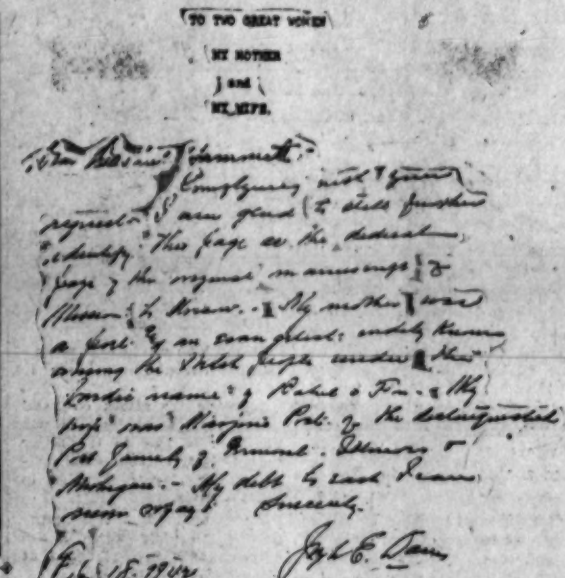 TO TWO GREAT WOMEN
MY MOTHER
and
MY WIFE.
Complying with your
request I am glad to still further
identify this page as the dedication
page of the original manuscript of
Mission to Moscow. My mother was
a poet & an evangelist widely known
among the Welsh people under the
bardic name of Rahel o Fon. My
wife was Marjorie Post of the distinguished
Post family of Vermont, Illinois &
Michigan. My debt to each I can
never repay. Sincerely.
Joseph E. Davies
Feb 18. 1942